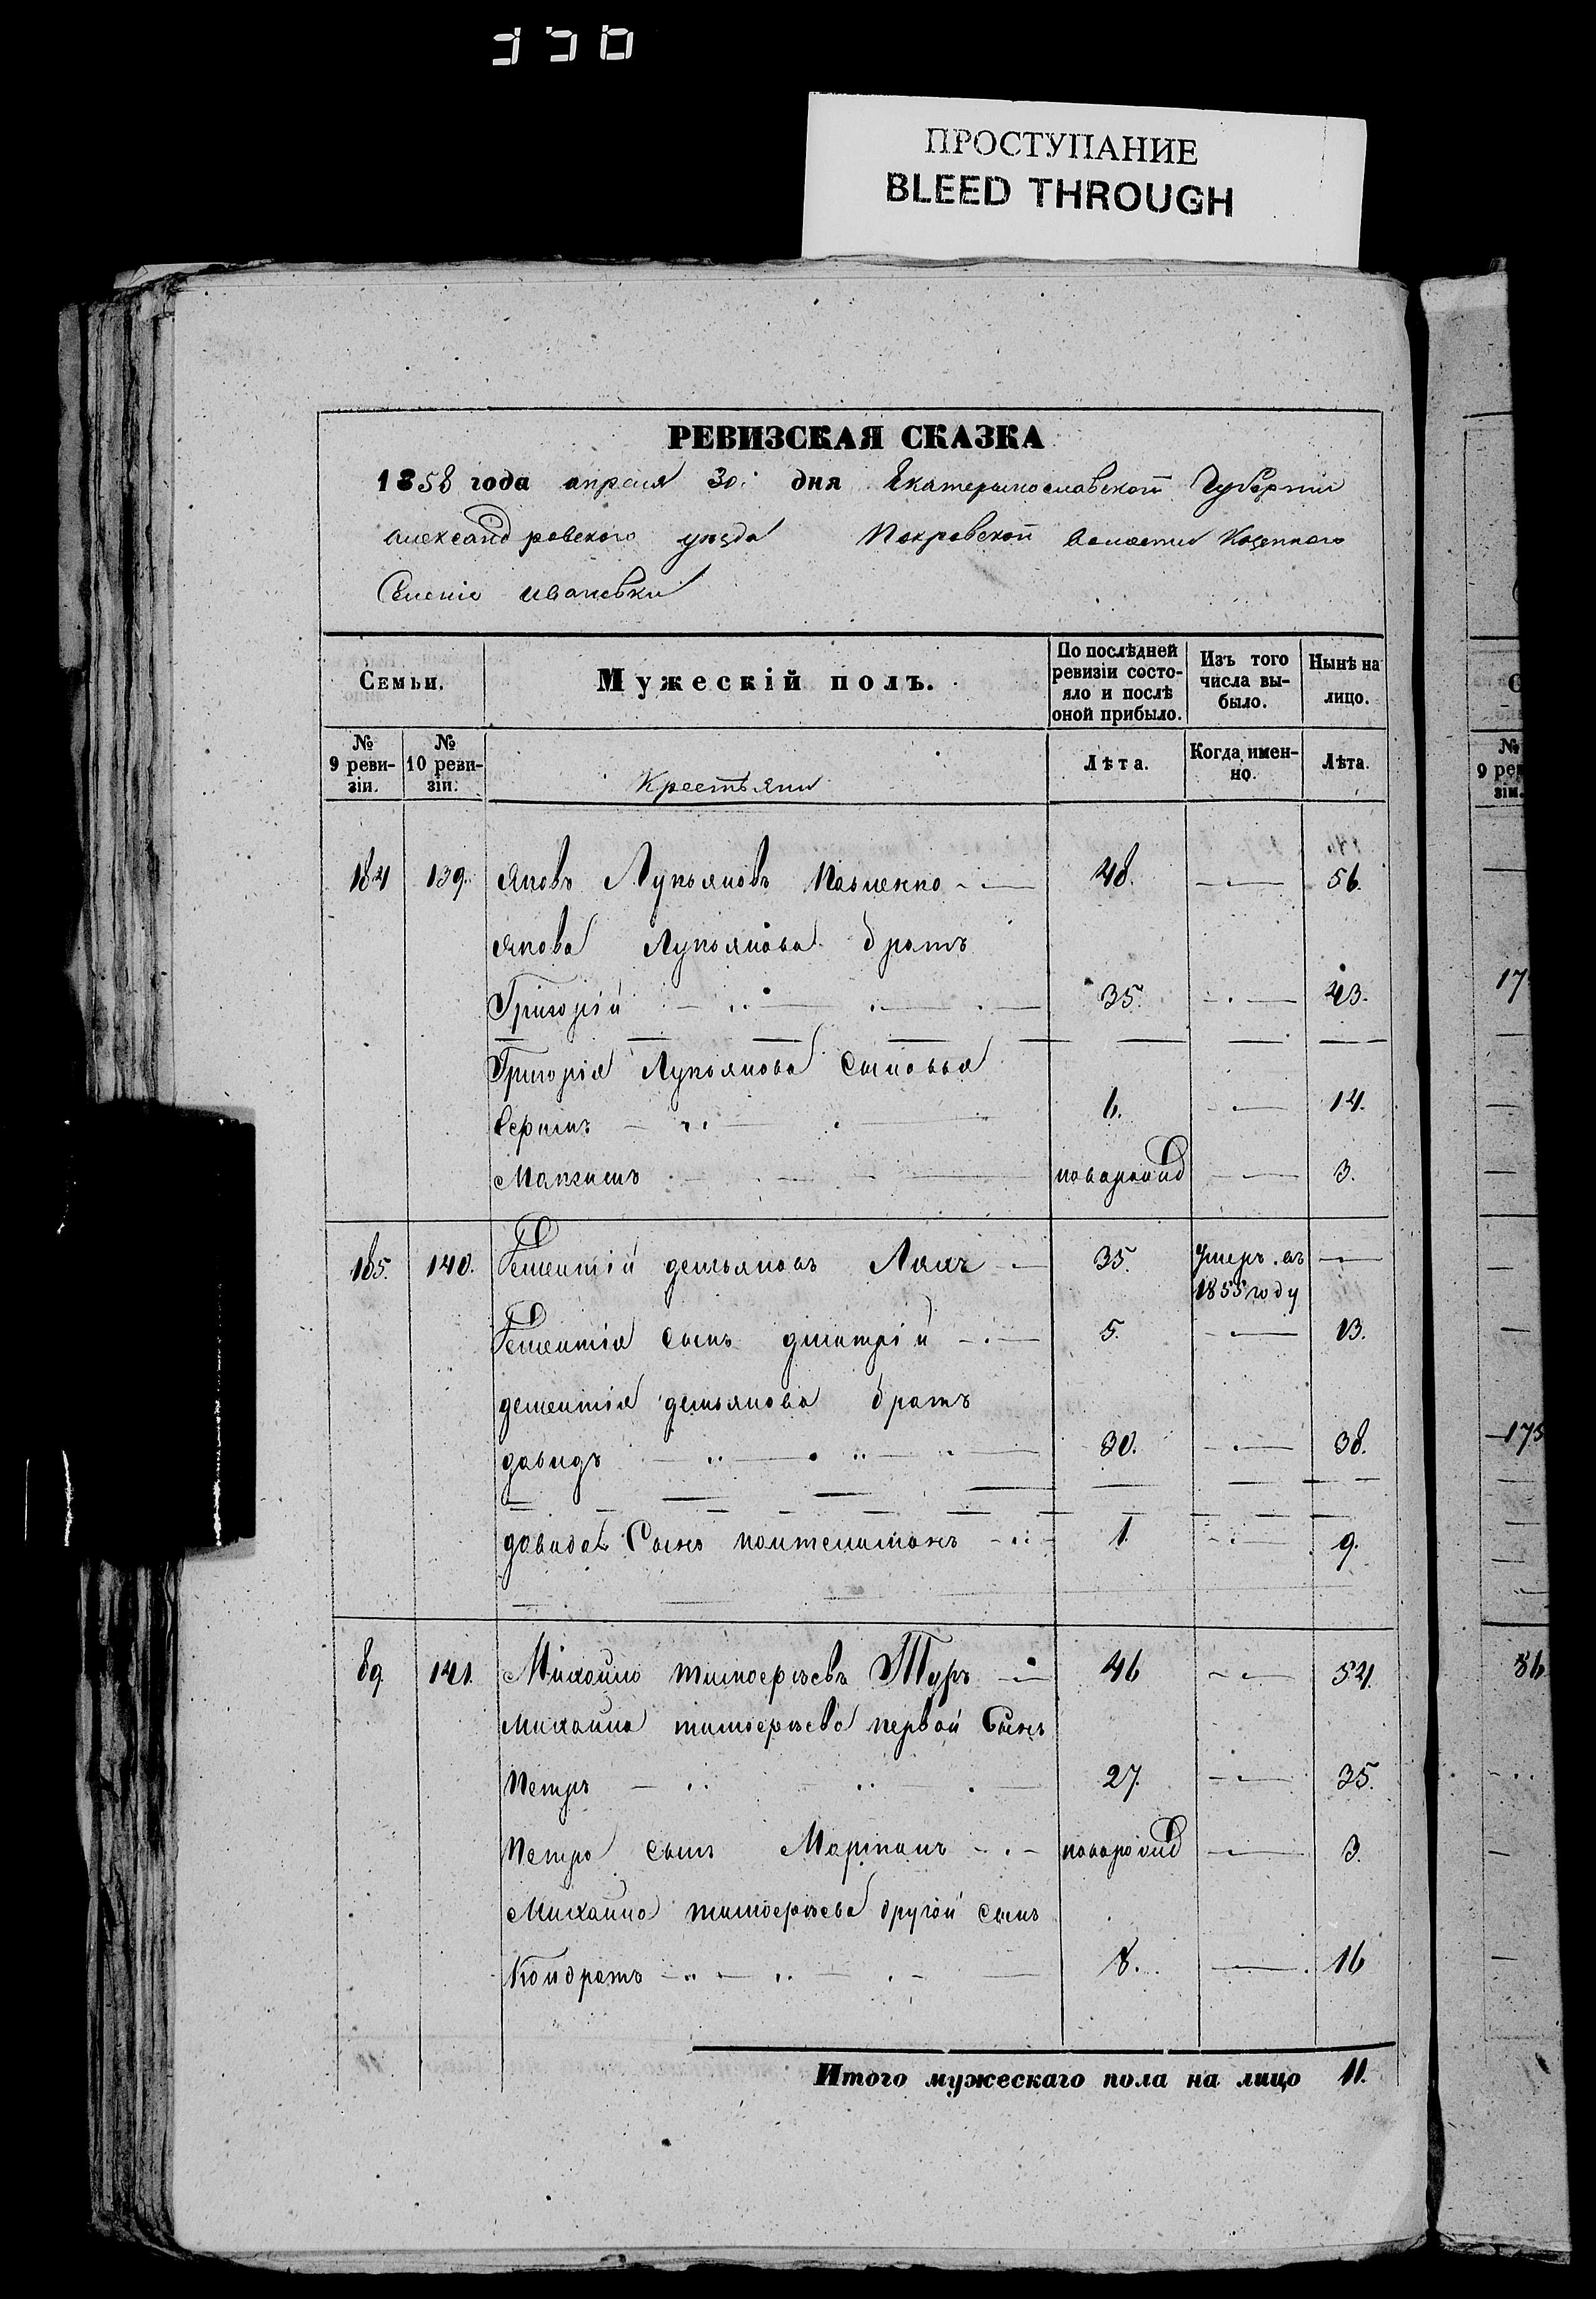 ПРОСТУПАНИЕ
BLEED THROUGH
РЕВИЗСКАЯ СКАЗКА
1858 года апреля 30. дня Екатерынославской Губернии
Александровского уезда Покровской Волости Казенного
Селение Ивановки
Семьи. Мужескій полъ. По послѣдней ревизіи состояло и послѣ оной прибыло. Изъ того числа выбыло. Нынѣ на лицо.
№ 9 ревизіи. № 10 ревизіи. Крестьяни Лѣта. Когда именно. Лѣта.
184 139. Яковъ Лукьяновъ 48. 56.
Якова Лукьянова братъ
Григорій 35. 43.
Григорія Лукьянова сыновья
6. 14.
Максимъ новорожд 3.
185. 140. Дементій демьяновъ Лялъ 35. Умеръ въ
1855 году
Дементія сынъ дмитрій 5. 13.
дементія демьянова братъ
давидъ 30. 38.
давида Сынъ 1. 9.
89. 141. Михайло тимоеѣевъ Туръ 46 54.
Михайла тимоеѣева первой Сынъ
Петръ 27. 35.
Петра сынъ новорожд 3.
Михайла тимоеѣева другой сынъ
Кондратъ 8. 16
Итого мужескаго пола на лицо 11.